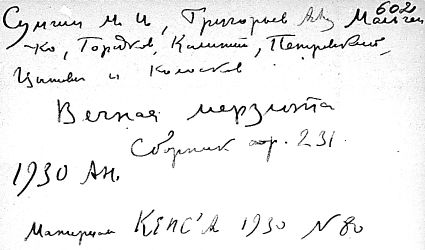 602
Сумгин М. И., Григорьев
-ко, Городков, Петровский,
и Колосков
Вечная мерзлота
Сборник стр. 231.
1930 Ан.
Материалы КЕПС'А 1930 N 80